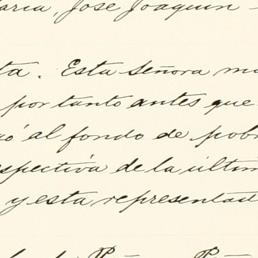 María, José Joaquín
ta. Esta señora mu
por tanto antes que
ó al fondo de pobr
espectiva de la últim
y esta representad